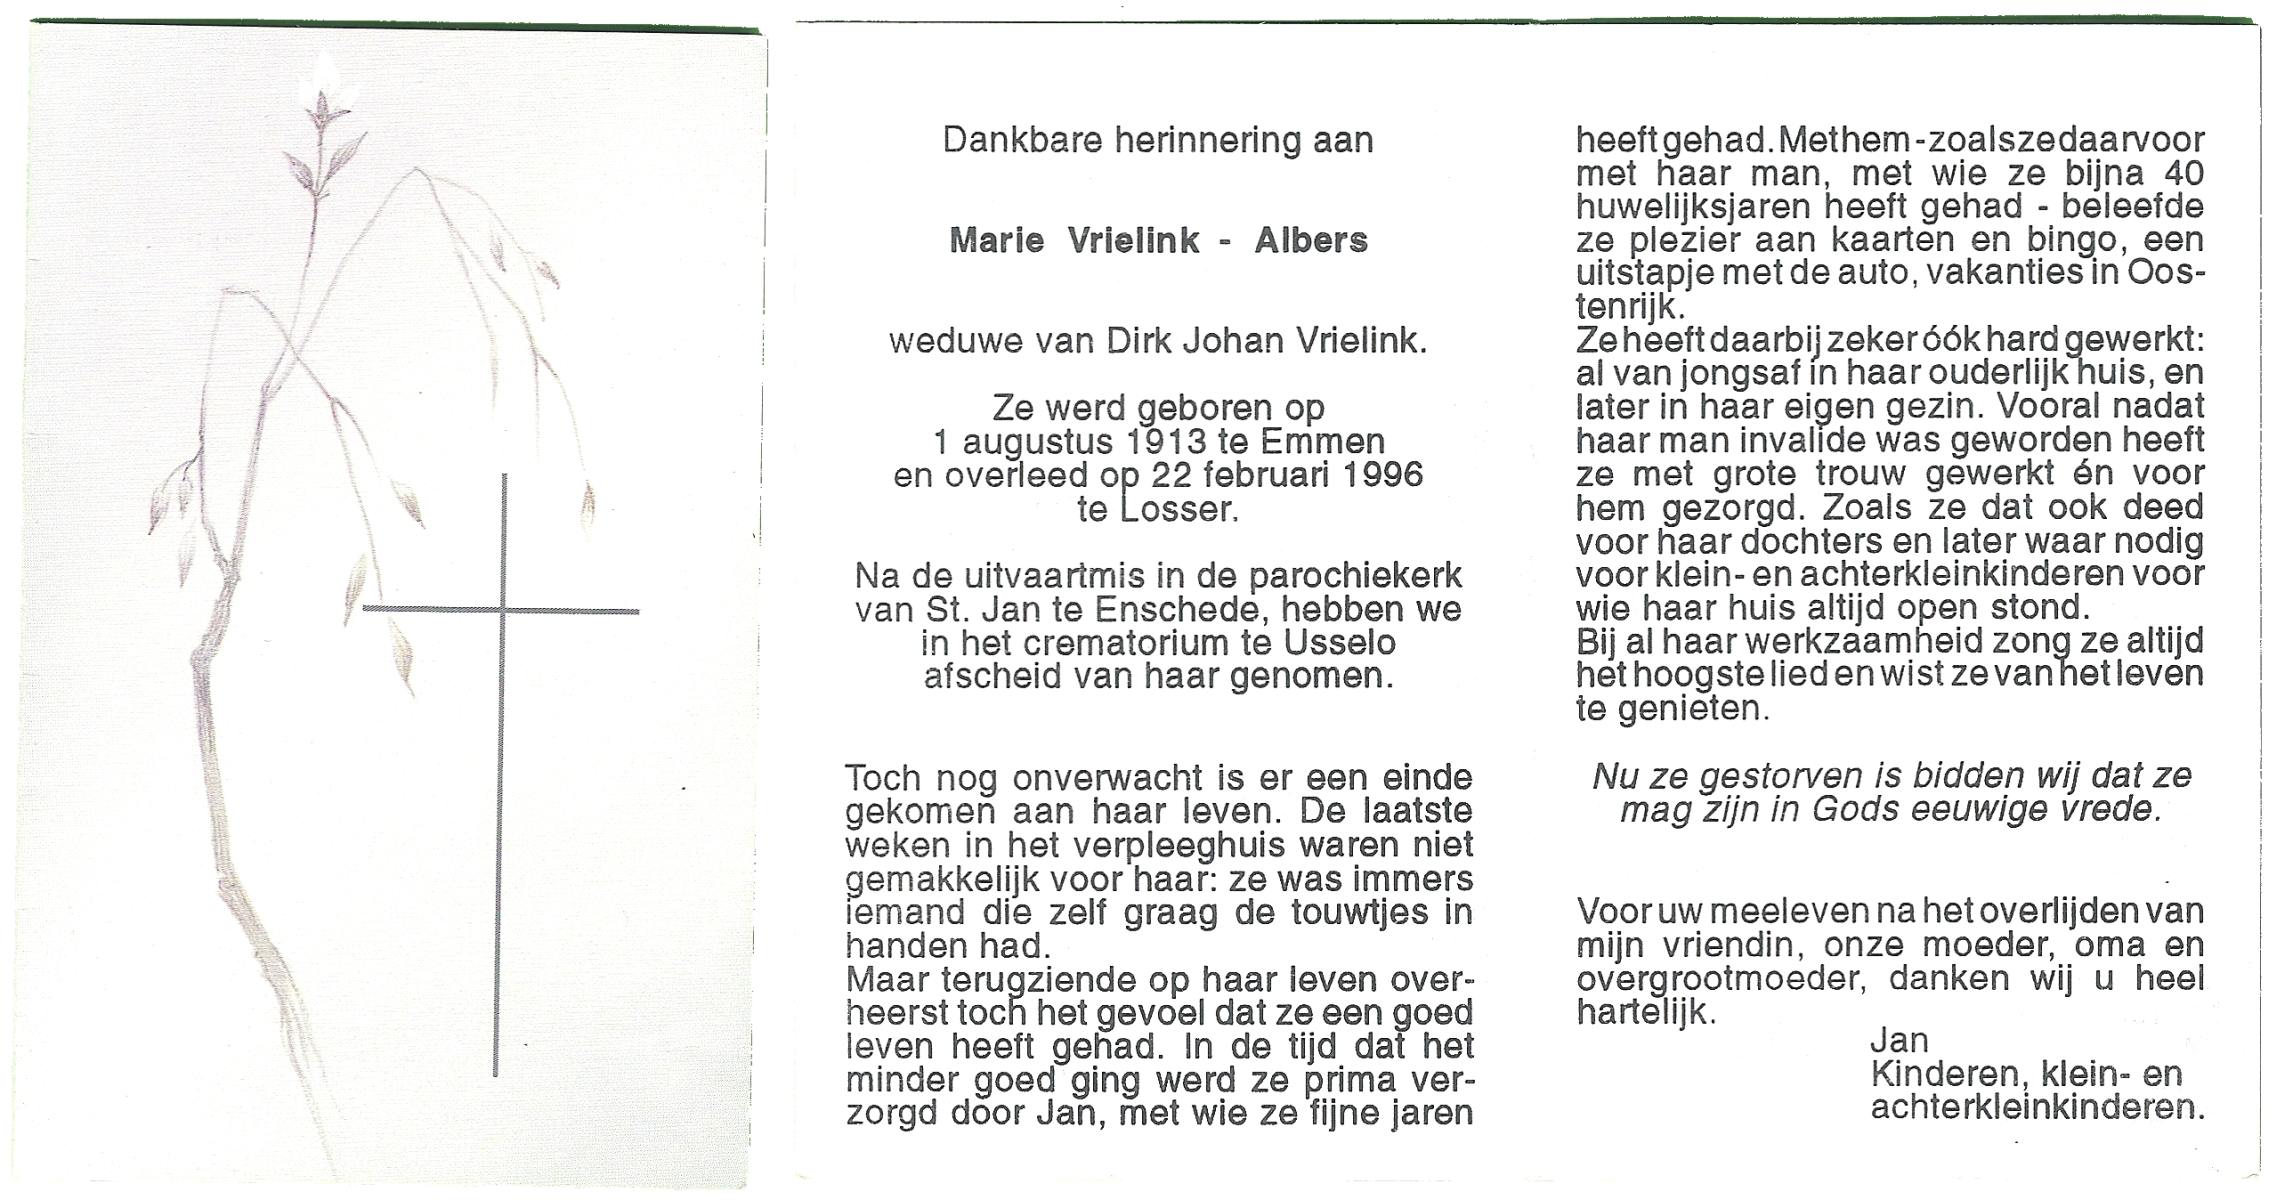 Dankbare herinnering aan
Marie Vrielink - Albers
weduwe van Dirk Johan Vrielink.
Ze werd geboren op
1 augustus 1913 te Emmen
en overleed op 22 februari 1996
te Losser.
Na de uitvaartmis in de parochiekerk
van St. Jan te Enschede, hebben we
in het crematorium te Usselo
afscheid van haar genomen.
Toch nog onverwacht is er een einde
gekomen aan haar leven. De laatste
weken in het verpleeghuis waren niet
gemakkelijk voor haar: ze was immers
iemand die zelf graag de touwtjes in
handen had.
Maar terugziende op haar leven over-
heerst toch het gevoel dat ze een goed
leven heeft gehad. In de tijd dat het
minder goed ging werd ze prima ver-
zorgd door Jan, met wie ze fijne jaren
heeft gehad. Met hem - zoals ze daarvoor
met haar man, met wie ze bijna 40
huwelijksjaren heeft gehad - beleefde
ze plezier aan kaarten en bingo, een
uitstapje met de auto, vakanties in Oos-
tenrijk.
Ze heeft daarbij zeker óók hard gewerkt:
al van jongsaf in haar ouderlijk huis, en
later in haar eigen gezin. Vooral nadat
haar man invalide was geworden heeft
ze met grote trouw gewerkt én voor
hem gezorgd. Zoals ze dat ook deed
voor haar dochters en later waar nodig
voor klein- en achterkleinkinderen voor
wie haar huis altijd open stond.
Bij al haar werkzaamheid zong ze altijd
het hoogste lied en wist ze van het leven
te genieten.
Nu ze gestorven is bidden wij dat ze
mag zijn in Gods eeuwige vrede.
Voor uw meeleven na het overlijden van
mijn vriendin, onze moeder, oma en
overgrootmoeder, danken wij u heel
hartelijk.
Jan
Kinderen, klein- en
achterkleinkinderen.